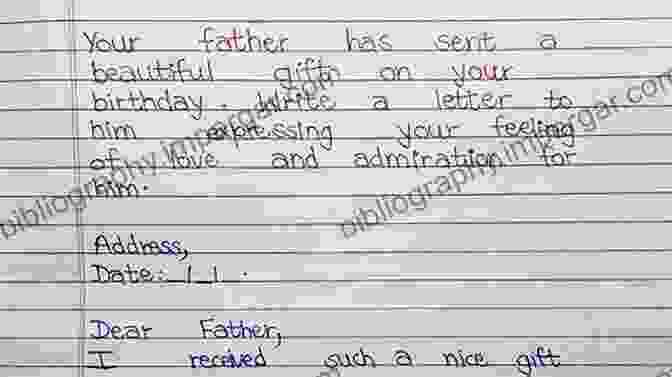 Your father has sent a
beautiful gift on your
birthday. Write a letter to
him expressing your feeling
of love and admiration for
him.
Address,
Date:_/_/_.
Dear Father,
I received such a nice gift
bibliography.impargar.com
bibliography.impargar.com